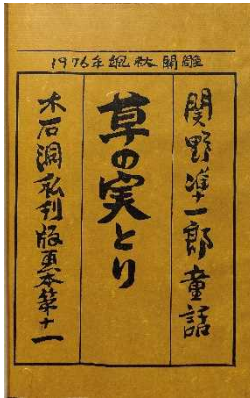 1976年颯秋開雕
関野凖一郎童話
草の実とり
木石洞私刊版画本第十一